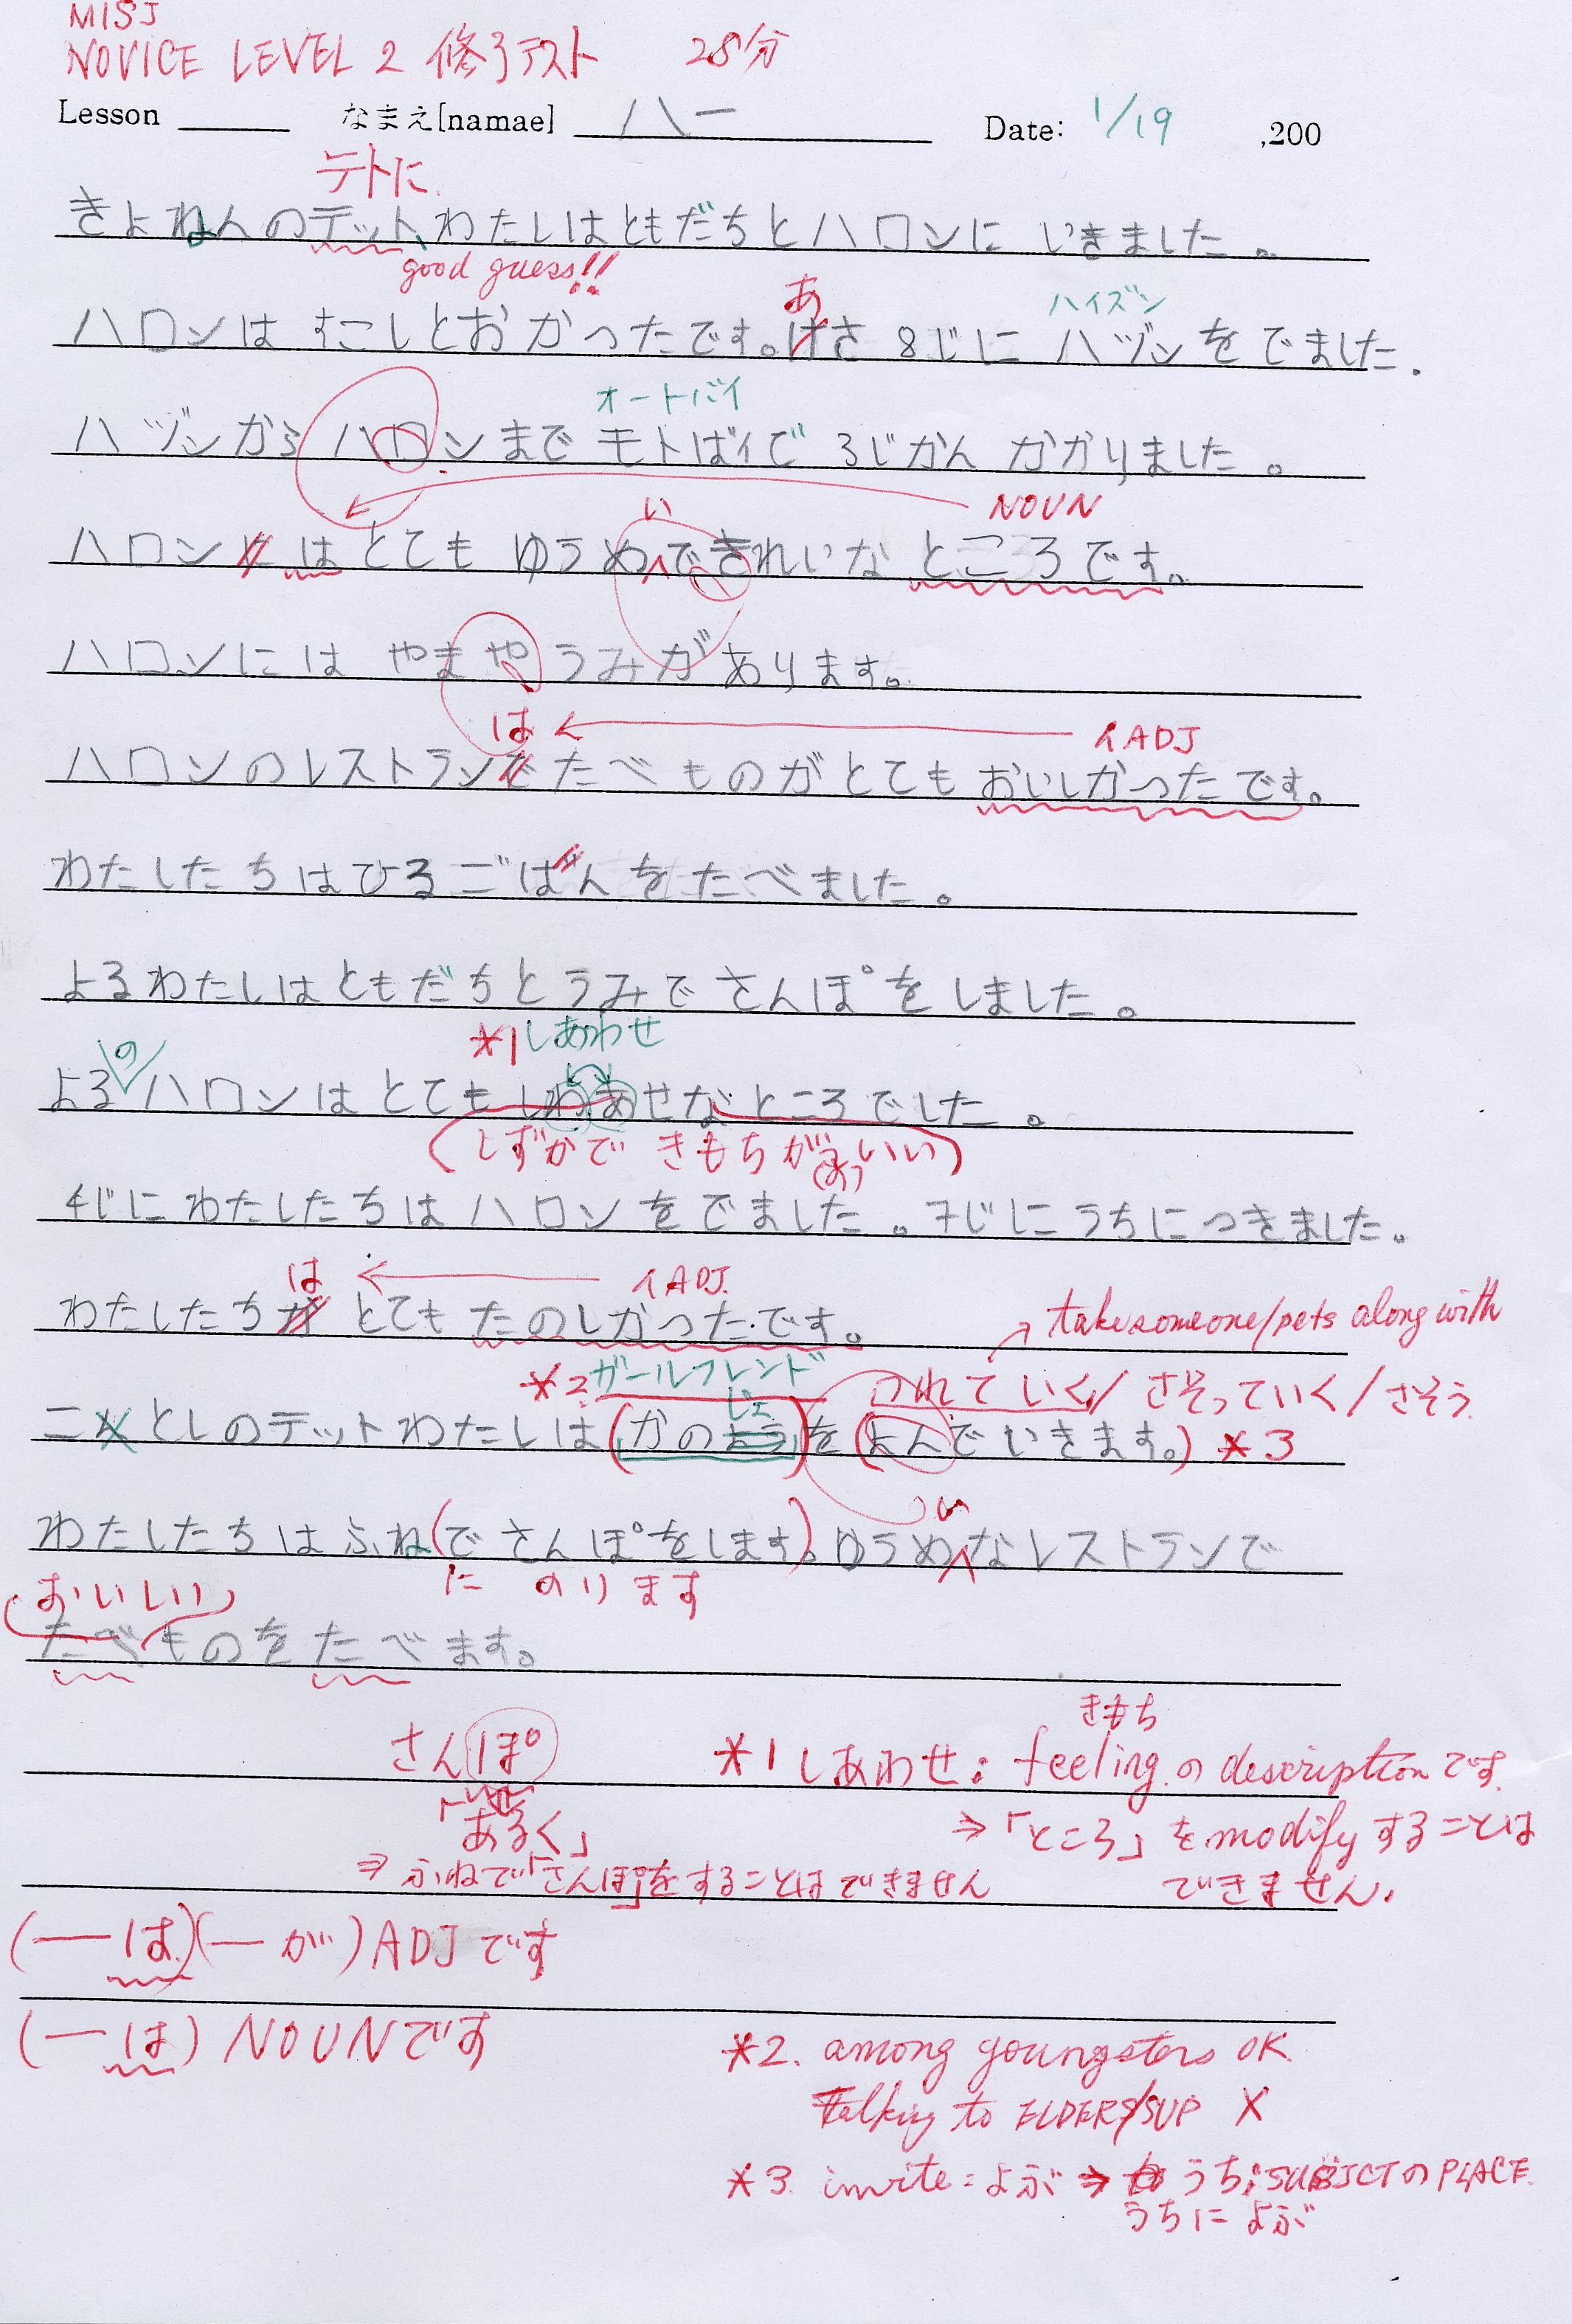 MISJ
NOVICE LEVEL 2 修了テスト 28分
Lesson なまえ[namae] ハー Date: 1/19 ,200
テトに
きよねんのテット、わたしはともだちとハロンに いきました。
good guess!!
あ ハイズン
ハロンは すこしとおかったです。けさ 8じに ハヅンをでました.
オートバイ
ハヅンから ハロンまで モトばイで 3じかん かかりました。
い NOUN
ハロンに はとても ゆうめできれいな ところです。
ハロンには やまや うみがあります。
は イADJ
ハロンのレストランで たべものがとても おいしかったです。
わたしたちはひるごばんをたべました。
よるわたしはともだちとうみで さんぽをしました。
*1 しあわせ
の
よるハロンはとても しわあせなところでした。
(しずかで きもちが いい)
4じにわたしたちは ハロンをでました。7じにうちにつきました。
は イADJ.
わたしたちが とても たのしかったです。
take someone/pets along with
*2 ガールフレンド つれていく/さそっていく/さそう
じょ
こxとしのテットわたしは(かのよう)を(よんでいきます。) *3
い
わたしたちはふね(でさんぽをします)。ゆうめなレストランで
に のります
おいしい
たべものをたべます。
さんぽ
「あるく」
⇒ ふねで「さんぽ」をすることはできません
きもち
*1 しあわせ: feelingのdescriptionです
⇒「ところ」をmodifyすることは
できません.
(—は)(—が)ADJです
(—は) NOUNです
*2. among youngsters OK.
Talking to ELDERS/SUP X
*3. invite: よぶ ⇒ うち; SUBJCTのPLACE
うちに よぶ